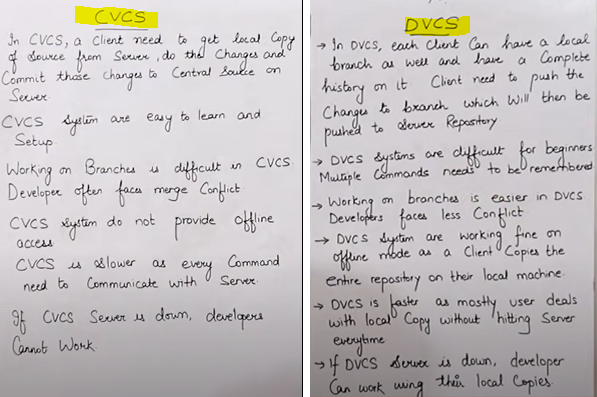 CVCS
In CVCS, a Client need to get local Copy
of Source from Server, do the Changes and
Commit those changes to Central Source on
Server.
CVCS System are easy to learn and
Setup.
Working on Branches is difficult in CVCS.
Developer often faces merge Conflict
CVCS System do not provide offline
access
CVCS is slower as every Command
need to Communicate with Server.
If CVCS Server is down, developers
Cannot Work.
DVCS
→ In DVCS, each Client Can have a local
branch as well and have a Complete
history on it. Client need to push the
Changes to branch which Will then be
pushed to Server Repository
→ DVCS Systems are difficult for beginners
Multiple Commands needs to be remembered
→ Working on branches is easier in DVCS.
Developers faces less Conflict
→ DVCS System are working fine on
offline mode as a Client Copies the
entire repository on their local machine.
→ DVCS is faster as mostly user deals
with local Copy without hitting Server
everytime
→ If DVCS Server is down, developer
Can work using their local Copies.